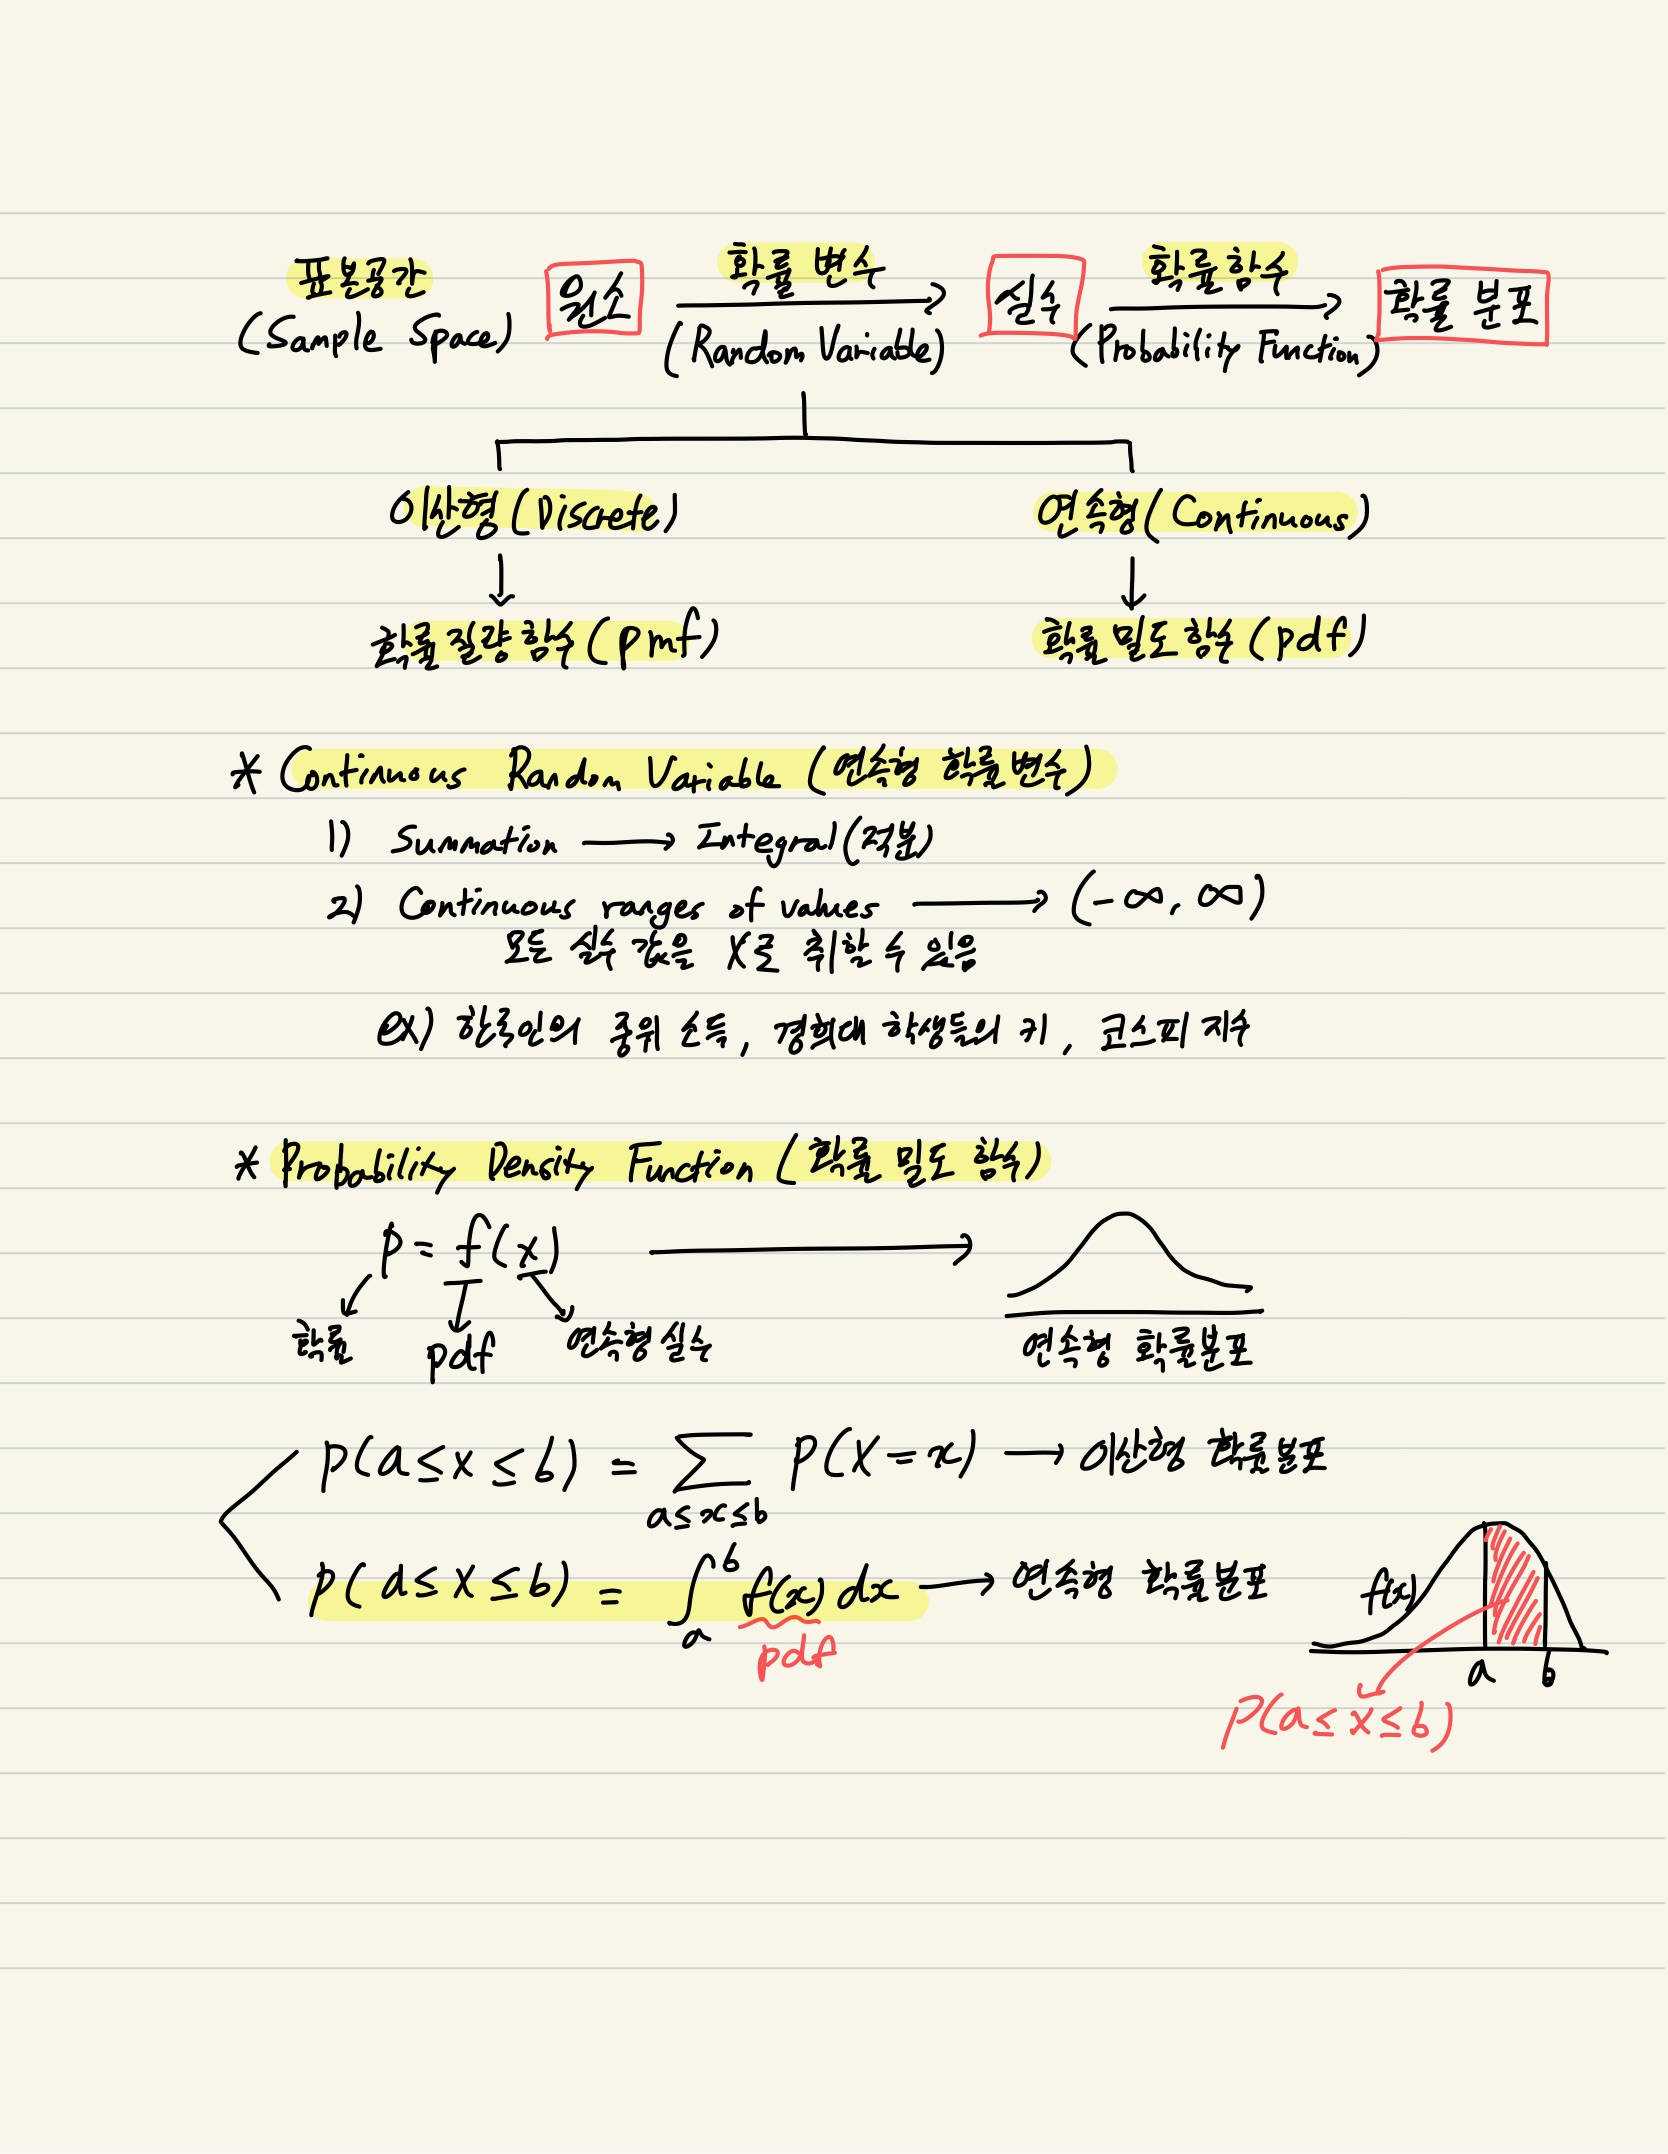 표본공간 원소 확률 변수 실수 확률함수 확률 분포
(Sample Space) (Random Variable) (Probability Function)
이산형 (Discrete) 연속형 (Continuous)
확률 질량 함수 (pmf) 확률 밀도 함수 (pdf)
* Continuous Random Variable (연속형 확률변수)
1) Summation → Integral (적분)
2) Continuous ranges of values → (-∞, ∞)
모든 실수 값을 X로 취할 수 있음
ex) 한국인의 중위 소득, 경희대 학생들의 키, 코스피 지수
* Probability Density Function (확률 밀도 함수)
P = f(x) →
확률 pdf 연속형 실수 연속형 확률분포
P(a ≤ X ≤ b) = ∑ P(X = x) → 이산형 확률분포
a ≤ x ≤ b
P(a ≤ X ≤ b) = ∫ₐᵇ f(x) dx → 연속형 확률분포
pdf
f(x)
a b
P(a ≤ X ≤ b)